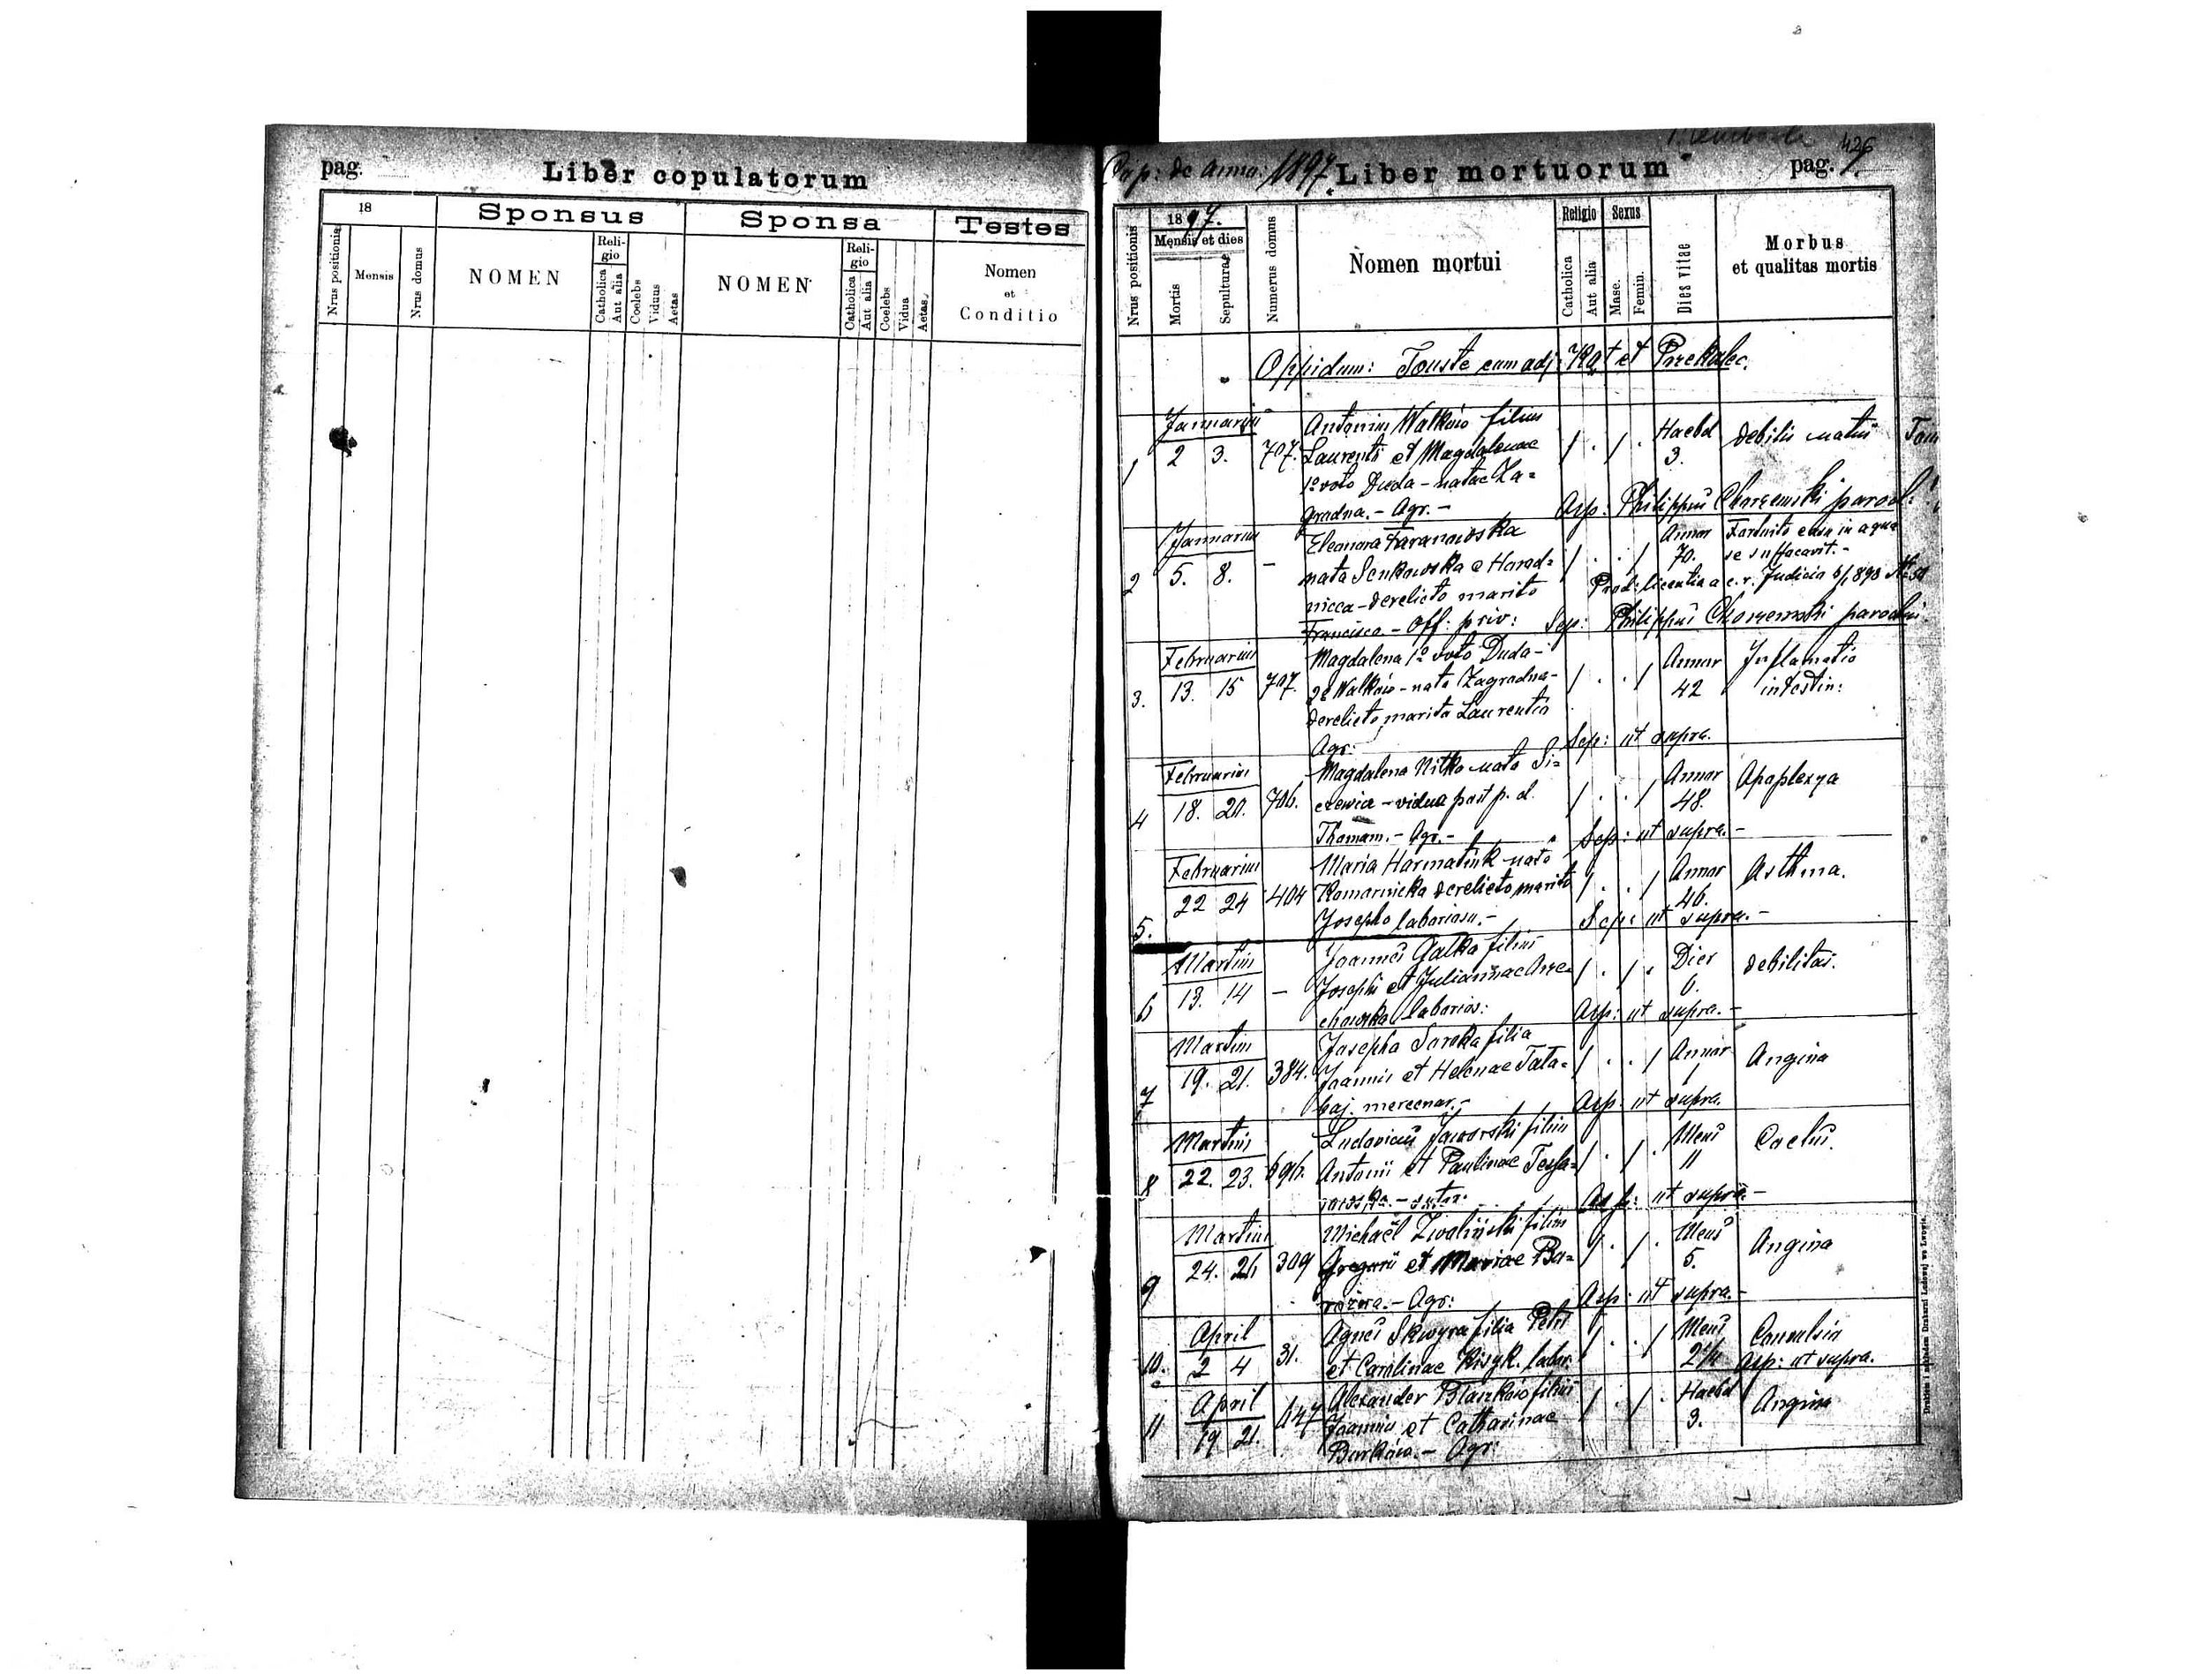 pag.
Liber copulatorum
18
Sponsus
Sponsa
Testes
Nrus positionis
Mensis
Nrus domus
NOMEN
Religio
Catholica
Aut alia
Coelebs
Viduus
Aetas
NOMEN
Religio
Catholica
Aut alia
Coelebs
Vidua
Aetas
Nomen
et
Conditio
Cop: de Anno: 1897
Liber mortuorum
426
pag. 1.
Nrus positionis
1897.
Mensis et dies
Mortis
Sepulturae
Numerus domus
Nomen mortui
Religio
Catholica
Aut alia
Sexus
Masc.
Femin.
Dies vitae
Morbus
et qualitas mortis
Oppidum: Touste cum adj: Kąt et Przekalec.
Januarius
Antonius Walków filius
1 2 3. 707. Laurentii et Magdalenae / . / . Haebd 3. debilis natus
1º voto Duda - natae Za=
gradna. - Agr. - Asp: Philippus Chorzemski paroch:
Januarius
Eleonora Taranowska Annor Fortuito casu in aqua
2 5. 8. - nata Senkowska e Horod= / . . / 70. se suffocavit. -
nicca - derelicto marito Prod: licentia a c. r. Judicio
Francisco - Off: priv: Sep: Philippus Chorzemski parochus
Februarius
Magdalena 1º voto Duda -
3. 13. 15 707. 2º Walków - nata Zagradna - / . . / Annor 42 Inflamatio intestin:
derelicto marito Laurentio
Agr: Sep: ut supra.
Februarius
Magdalena Nitka nata Si=
4 18. 20. 706. czewicz - vidua post p. d. / . . / Annor 48. Apoplexya
Thomam. - Agr. - Sep: ut supra. -
Februarius
Maria Harmatiuk nata
5. 22 24 404 Komarnicka derelicto marito / . . / Annor 46. Asthma.
Josepho laborioso. - Sep: ut supra. -
Martius
Joannes Gałka filius
6 13. 14 - Josephi et Juliannae / . / . Dier 6. debilitas.
laborios: Asp: ut supra. -
Martius
Josepha Soroka filia
7 19. 21. 384. Joannis et Helenae Tata= / . . / Annor 1 Angina
haj. mercenar. - Asp: ut supra.
Martius
Ludovicus Jaworski filius
8 22. 23. 696. Antonii et Paulinae / . / . Mens 11
- sutor. Asp: ut supra. -
Martius
Michaël Zwoliński filius
9 24. 26 309 Gregorii et Mariae Ba= / . / . Mens 5. Angina
- Agr: Asp: ut supra. -
April
Agnes Skwyra filia Petri
10. 2 4 31. et Carolinae labor. / . . / Mens Convulsio
Asp: ut supra.
April
Alexander filius
11 19 21. 647 Joannis et Catharinae / . / . Haebd 3. Angina
Burków. - Agr:
Drukiem i nakładem Drukarni Ludowej we Lwowie.